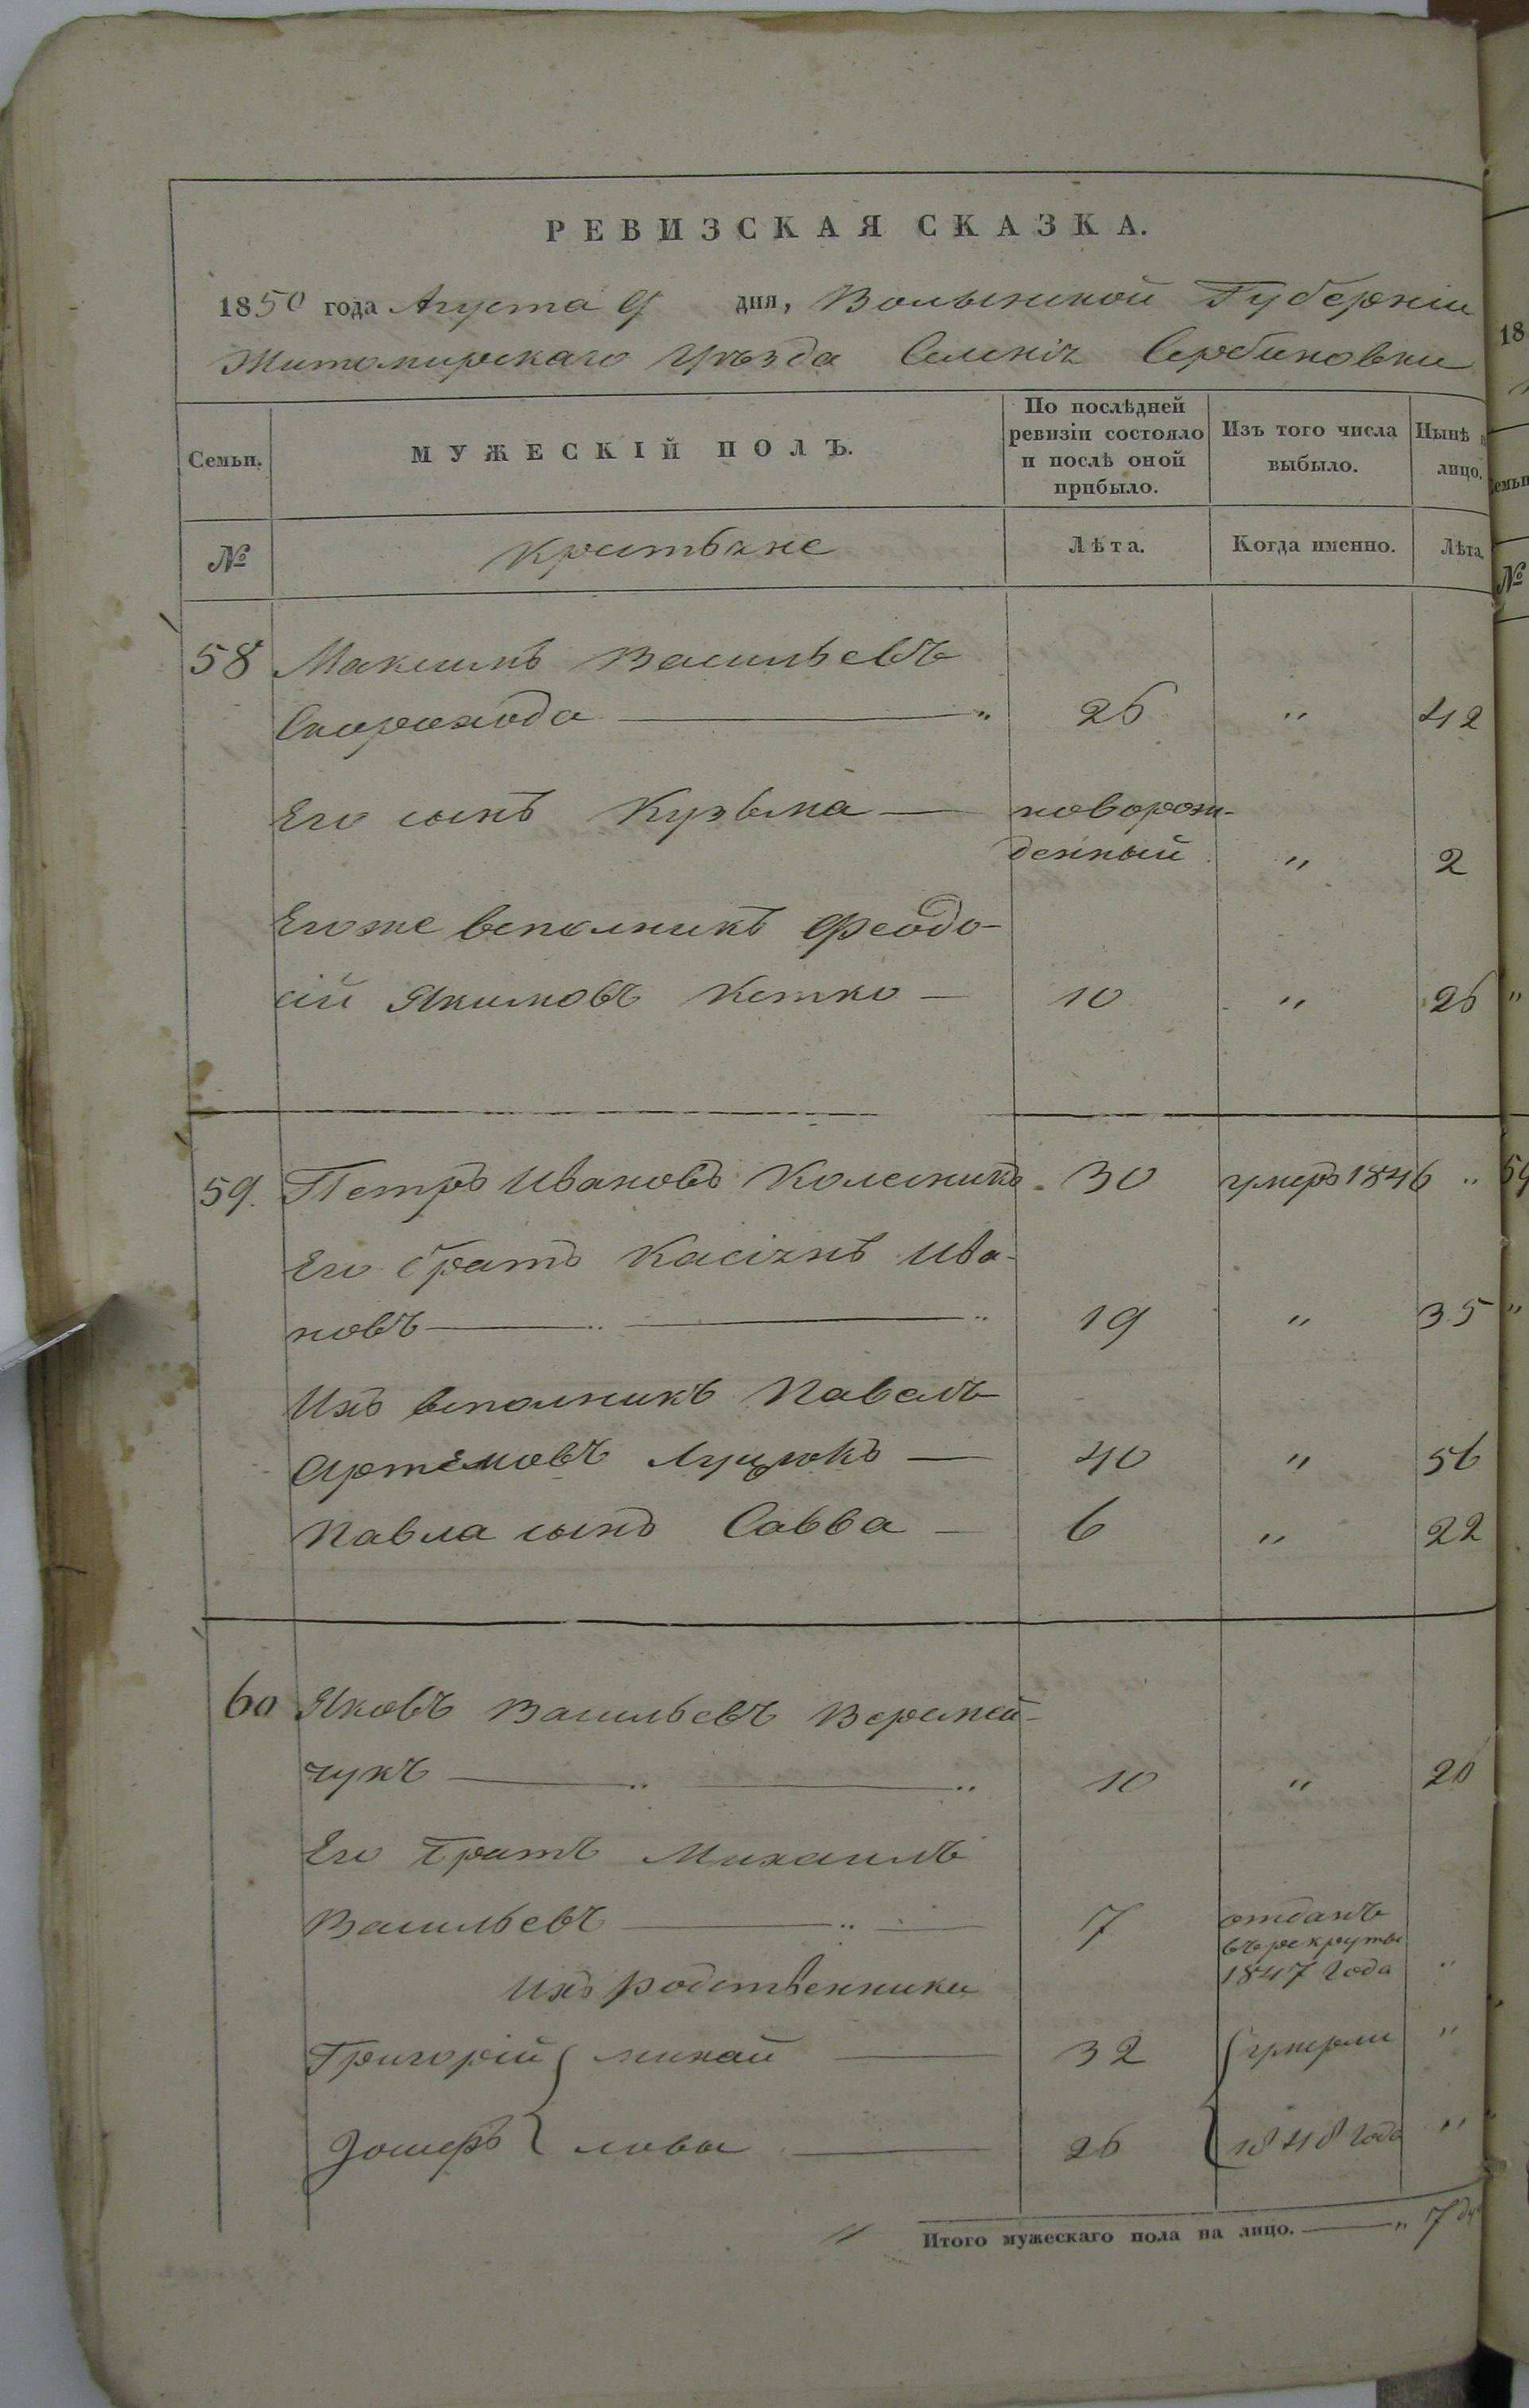 РЕВИЗСКАЯ СКАЗКА.
1850 года Августа 9 дня, Волынской Губерніи
Житомирскаго Уѣзда Селенія Сербиновки
Семьи. МУЖЕСКІЙ ПОЛЪ. По послѣдней ревизіи состояло и послѣ оной прибыло. Изъ того числа выбыло. Нынѣ на лицо.
№ Крестьяне Лѣта. Когда именно. Лѣта.
58 Максимъ Васильевъ
Скорохода — " 26 " 42
Его сынъ Кузьма — новорож-
денный " 2
Его же вспольникъ Феодо-
сій Якимовъ Кетко — 10 " 26
59. Петръ Ивановъ Колесникъ. 30 умеръ 1846 "
Его братъ Касіянъ Ива-
новъ — " — " 19 " 35
Ихъ вспольникъ Павелъ
Артемовъ Луцюкъ — 40 " 56
Павла сынъ Савва — 6 " 22
60 Яковъ Васильевъ Веремей-
чукъ — " — " 10 " 26
Его братъ Михаилъ
Васильевъ — " — 7 отданъ
въ рекруты
1847 года "
Ихъ родственники
Григорій { михай — 32 { умерли "
{ ловы — 26 { 1848 года "
Итого мужескаго пола на лицо. — " 7
18
№
59